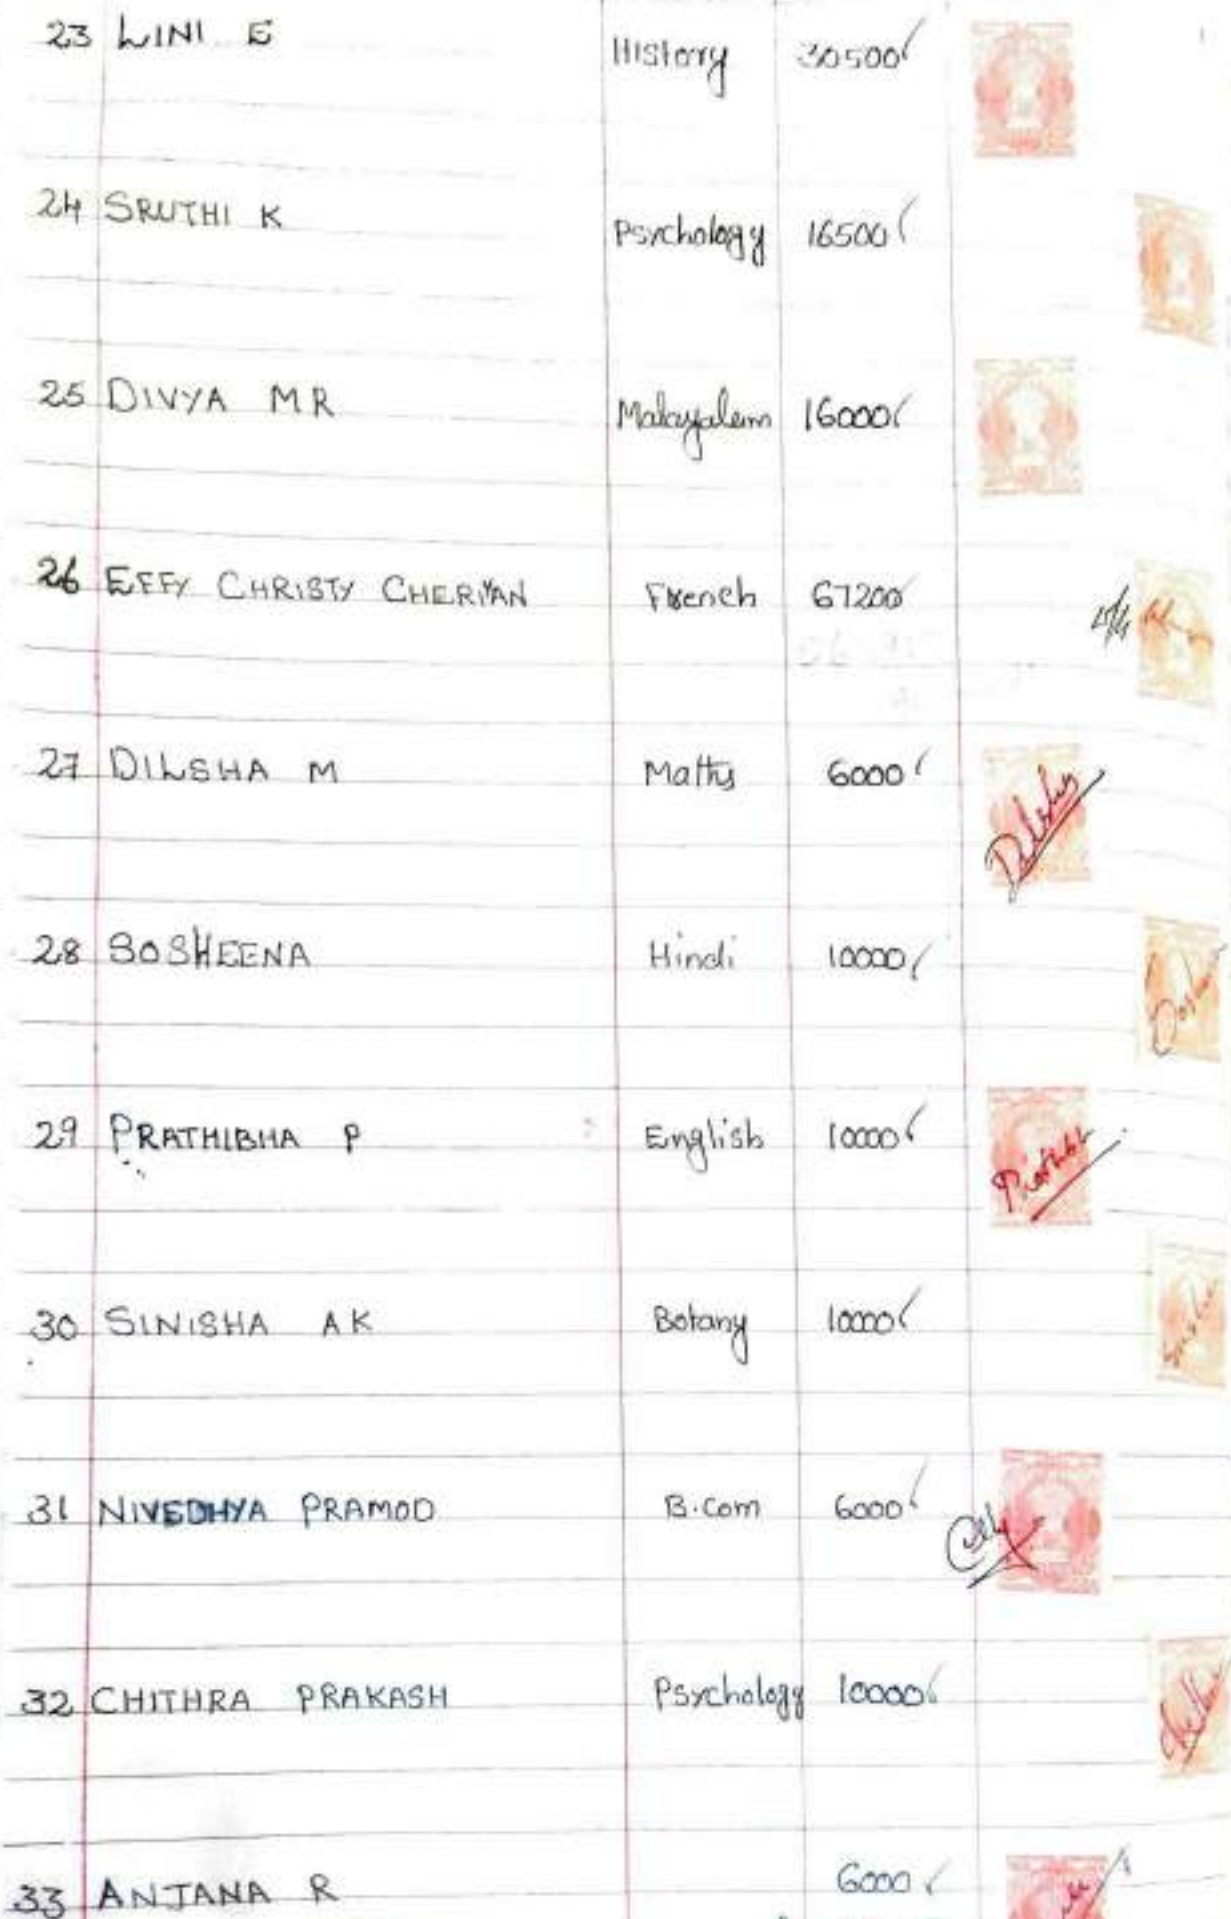 23 LINI E History 30500/
24 SRUTHI K Psychology 16500/
25 DIVYA MR Malayalam 16000/
26 EFFY CHRISTY CHERIYAN French 67200
27 DILSHA M Maths 6000/
Dilsha
28 SOSHEENA Hindi 10000/
29 PRATHIBHA P English 10000/
Prathibha
30 SINISHA AK Botany 10000/
31 NIVEDHYA PRAMOD B.Com 6000/
32 CHITHRA PRAKASH Psychology 10000/
33 ANJANA R 6000/